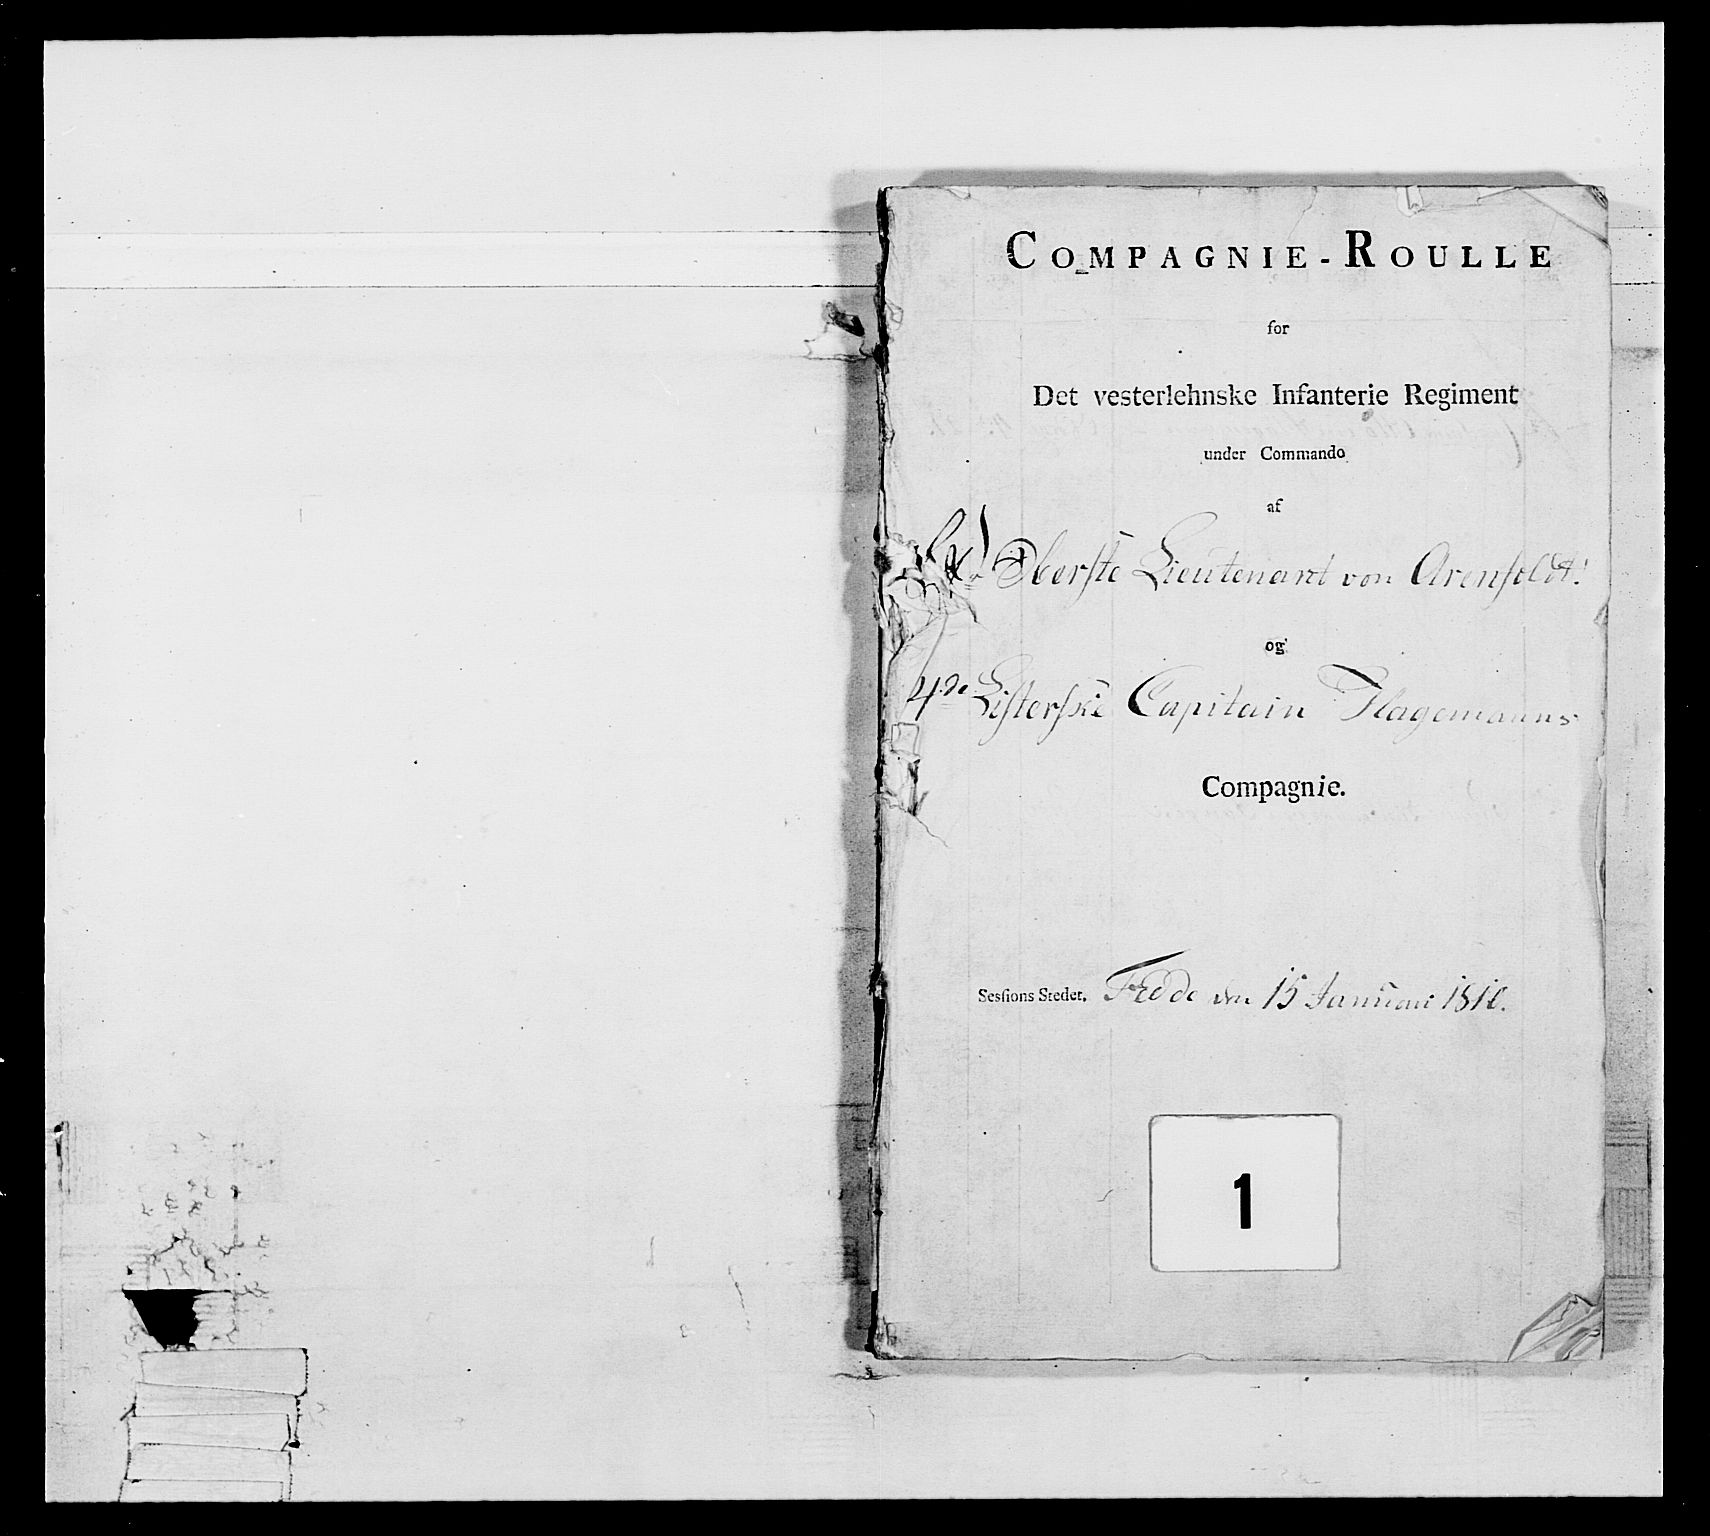 COMPAGNIE-ROULLE
for
Det vesterlehnske Infanterie Regiment
under Commando
af
Hr Oberste Lieutenant von Arenfeldt!
og
4de Listerske Capitain Hagemanns
Compagnie.
Sessions Stedet, Fedde den 15 Januari 1810.
1